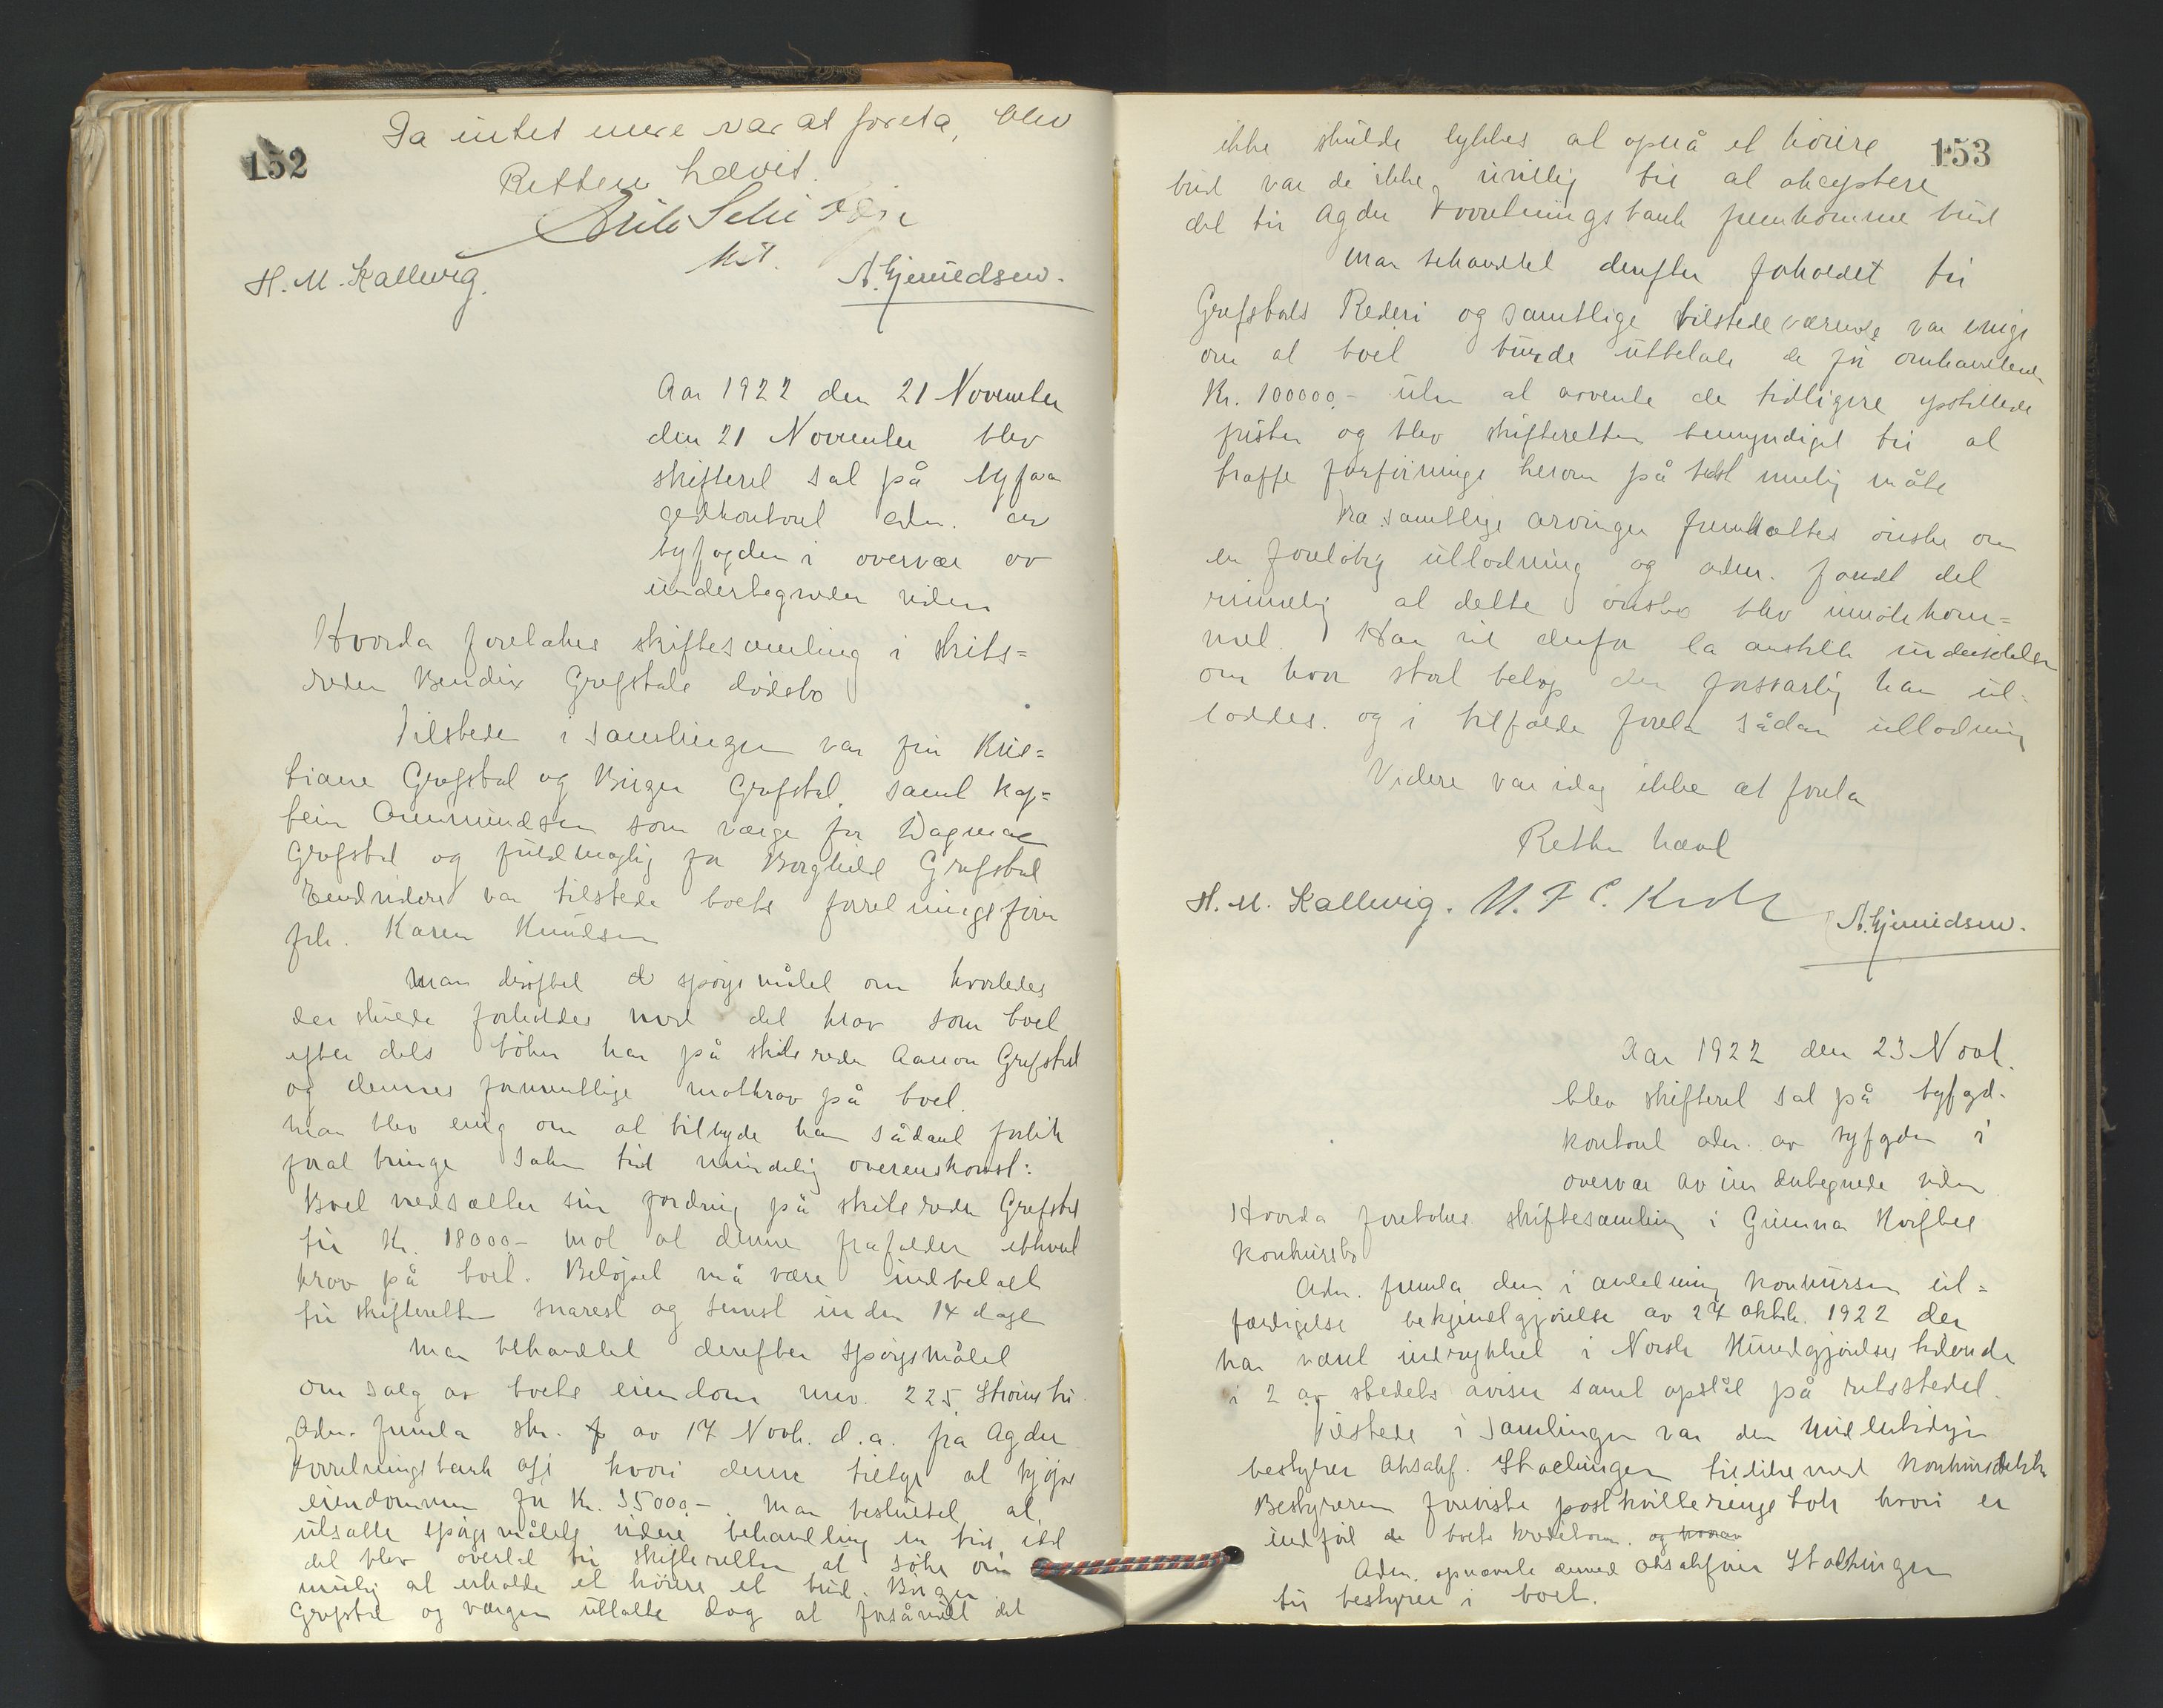 152
Da intet mere var at foreta, blev
Retten hævet.
kst.
H. M. Kallevig.
A. Gjemildsen.
Aar 1922 den 21 November
den 21 November blev
skifteret sat på byfo
gedkontoret adm. av
byfogden i overvær av
undertegnede vidner
Hvorda foretokes skiftesamling i skibs=
reder Bendix Grefstads dødsbo
Tilstede i samlingen var fru Kris=
tiane Grefstad og Birger Grefstad, samt kap=
tein Ommundsen som værge for Dagmar
Grefstad og fuldmægtig for Borghild Grefstad
Endvidere var tilstede boets forretningsfører
frk. Karen Knudsen
Man drøftet spørsmålet om hvorledes
der skulde forholdes med det krav som boet
efter dets bøker har på skibsreder Aanon Grefstad
og dennes formentlige motkrav på boet.
Man blev enig om at tilbyde ham sådant forlik
forat bringe saken til mindelig overenskomst:
Boet nedsætter sin fordring på skibsreder Grefstad
til Kr. 18000- mot at denne frafalder ethvert
krav på boet. Beløpet må være indbetalt
til skifteretten snarest og senest inden 14 dage
Man behandlet derefter spørsmålet
om salg av boets eiendom mnr. 225, Strømsbu.
Adm. fremla skr. av 17 Novb. d.a. fra Agder
Forretningsbank A/S hvori denne tilbyr at kjøpe
eiendommen for Kr. 35000.- Man besluttet at
utsætte spørsmålets videre behandling en tid, idet
det blev overlatt til skifteretten at søke om
mulig at erholde et høiere et bud. Birger
Grefstad og værgen uttalte dog at forsåvidt det
153
ikke skulde lykkes at opnå et høiere
bud var de ikke uvillig til at akceptere
det til Agder Forretningsbank fremkomne bud
Man behandlet derefter forholdet til
Grefstads Rederi og samtlige tilstedeværende var enige
om at boet burde utbetale de før omhandlede
Kr. 100000,- uten at avvente de tidligere opstillede
frister og blev skifteretten bemyndiget til at
træffe forføininge herom på best mulig måte
Fra samtlige arvinger fremsattes ønske om
en foreløbig utlodning og adm. fandt det
rimelig at dette ønske blev imøtekom=
met. Han vil derfor la anstille undersøkelser
om hvor stort beløp der forsvarlig kan ut=
loddes. og i tilfælde foreta sådan utlodning
Videre var idag ikke at foreta
Retten hævet
H. M. Kallevig.
A. Gjemildsen.
Aar 1922 den 23 Novb.
blev skifteret sat på byfgd.
kontoret adm. av byfgden i
overvær av undertegnede vidner
Hvorda foretokes skiftesamling i Gunnar
konkursbo
Adm. fremla den i anledning konkursen ut=
færdigelse bekjendtgjørelse av 27 oktbr. 1922 der
har været indrykket i Norsk Kundgjørelsestidende
i 2 av stedets aviser samt opslåt på retsstedet.
Tilstede i samlingen var den midlertidige
bestyrer oksakf. Stochinger tillikemed konkursdebitor
Bestyreren foreviste postkvitteringsbok hvori er
indført de boets kreditorer. og hvorav
Adm. opnævnte dermed oksakfører Stochinger
til bestyrer i boet.